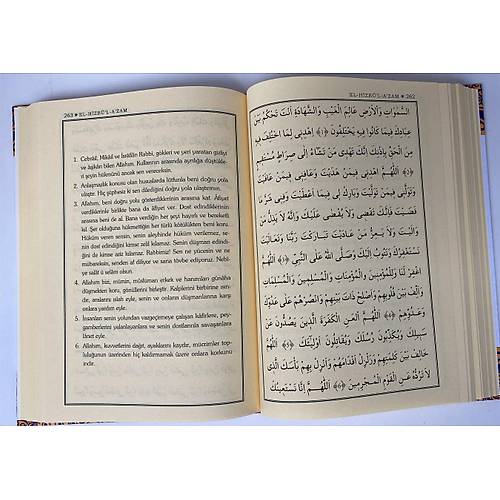 263 ❀ EL-HİZBÜ'L-A'ZAM
1. Cebrâil, Mikâil ve İsrâfilin Rabbi, gökleri ve yeri yaratan gizliyi
ve âşikârı bilen Allahım. Kullarının arasında ayrılığa düştükle-
ri şeyin hükmünü ancak sen vereceksin.
2. Anlaşmazlık konusu olan hususlarda lütfunla beni doğru yola
ulaştır. Hiç şüphesiz ki sen dilediğini doğru yola ulaştırırsın.
3. Allahım, beni doğru yolu gösterdiklerinin arasına kat. Âfiyet
verdiklerinle birlikte bana da âfiyet ver. Dost edindiklerinin
arasına beni de al. Bana verdiğin her şeyi hayırlı ve bereketli
kıl. Şer olduğuna hükmettiğin her türlü kötülükten beni koru.
Hüküm veren sensin, senin aleyhinde hüküm verilemez, se-
nin dost edindiğini kimse zelil kılamaz. Senin düşman edindi-
ğini de kimse aziz kılamaz. Rabbimiz! Sen ne yücesin ve ne
mübareksin, senden af diliyor ve sana tövbe ediyoruz. Nebi-
ye salât ü selâm olsun.
4. Allahım bizi, mümin, müslüman erkek ve hanımları günâha
düşmekten koru, gönüllerini birleştir. Kalplerini birbirine ısın-
dır, aralarını ıslah eyle, senin ve onların düşmanlarına karşı
onlara yardım eyle.
5. İnsanları senin yolundan vazgeçirmeye çalışan kâfirlere, pey-
gamberlerini yalanlayanlara ve senin dostlarınla savaşanlara
lânet eyle.
6. Allahım, kuvvetlerini dağıt, ayaklarını kaydır, mücrimler top-
luluğunun üzerinden hiç kaldırmamak üzere onlara korkunu
indir.
EL-HİZBÜ'L-A'ZAM ❀ 262
السَّمٰوَاتِ وَالْاَرْضِ عَالِمَ الْغَيْبِ وَالشَّهَادَةِ اَنْتَ تَحْكُمُ بَيْنَ
عِبَادِكَ فِيمَا كَانُوا فِيهِ يَخْتَلِفُونَ ﴿١﴾ اِهْدِنِى لِمَا اخْتُلِفَ فِيهِ
مِنَ الْحَقِّ بِاِذْنِكَ اِنَّكَ تَهْدِى مَنْ تَشَاءُ اِلٰى صِرَاطٍ مُسْتَقِيمٍ
﴿٢﴾ اَللّٰهُمَّ اهْدِنِى فِيمَنْ هَدَيْتَ وَعَافِنِى فِيمَنْ عَافَيْتَ
وَتَوَلَّنِى فِيمَنْ تَوَلَّيْتَ وَبَارِكْ لِى فِيمَا اَعْطَيْتَ وَقِنِى شَرَّ مَا
قَضَيْتَ فَاِنَّكَ تَقْضِى وَلَا يُقْضٰى عَلَيْكَ وَاِنَّهُ لَا يَذِلُّ مَنْ
وَالَيْتَ وَلَا يَعِزُّ مَنْ عَادَيْتَ تَبَارَكْتَ رَبَّنَا وَتَعَالَيْتَ
نَسْتَغْفِرُكَ وَنَتُوبُ اِلَيْكَ وَصَلَّى اللّٰهُ عَلَى النَّبِىِّ ﴿٣﴾ اَللّٰهُمَّ
اغْفِرْ لَنَا وَلِلْمُؤْمِنِينَ وَالْمُؤْمِنَاتِ وَالْمُسْلِمِينَ وَالْمُسْلِمَاتِ
وَاَلِّفْ بَيْنَ قُلُوبِهِمْ وَاَصْلِحْ ذَاتَ بَيْنِهِمْ وَانْصُرْهُمْ عَلٰى عَدُوِّكَ
وَعَدُوِّهِمْ ﴿٤﴾ اَللّٰهُمَّ الْعَنِ الْكَفَرَةَ الَّذِينَ يَصُدُّونَ عَنْ
سَبِيلِكَ وَيُكَذِّبُونَ رُسُلَكَ وَيُقَاتِلُونَ اَوْلِيَاءَكَ ﴿٥﴾ اَللّٰهُمَّ
خَالِفْ بَيْنَ كَلِمَتِهِمْ وَزَلْزِلْ اَقْدَامَهُمْ وَاَنْزِلْ بِهِمْ بَأْسَكَ الَّذِى
لَا تَرُدُّهُ عَنِ الْقَوْمِ الْمُجْرِمِينَ ﴿٦﴾ اَللّٰهُمَّ اِنَّا نَسْتَعِينُكَ